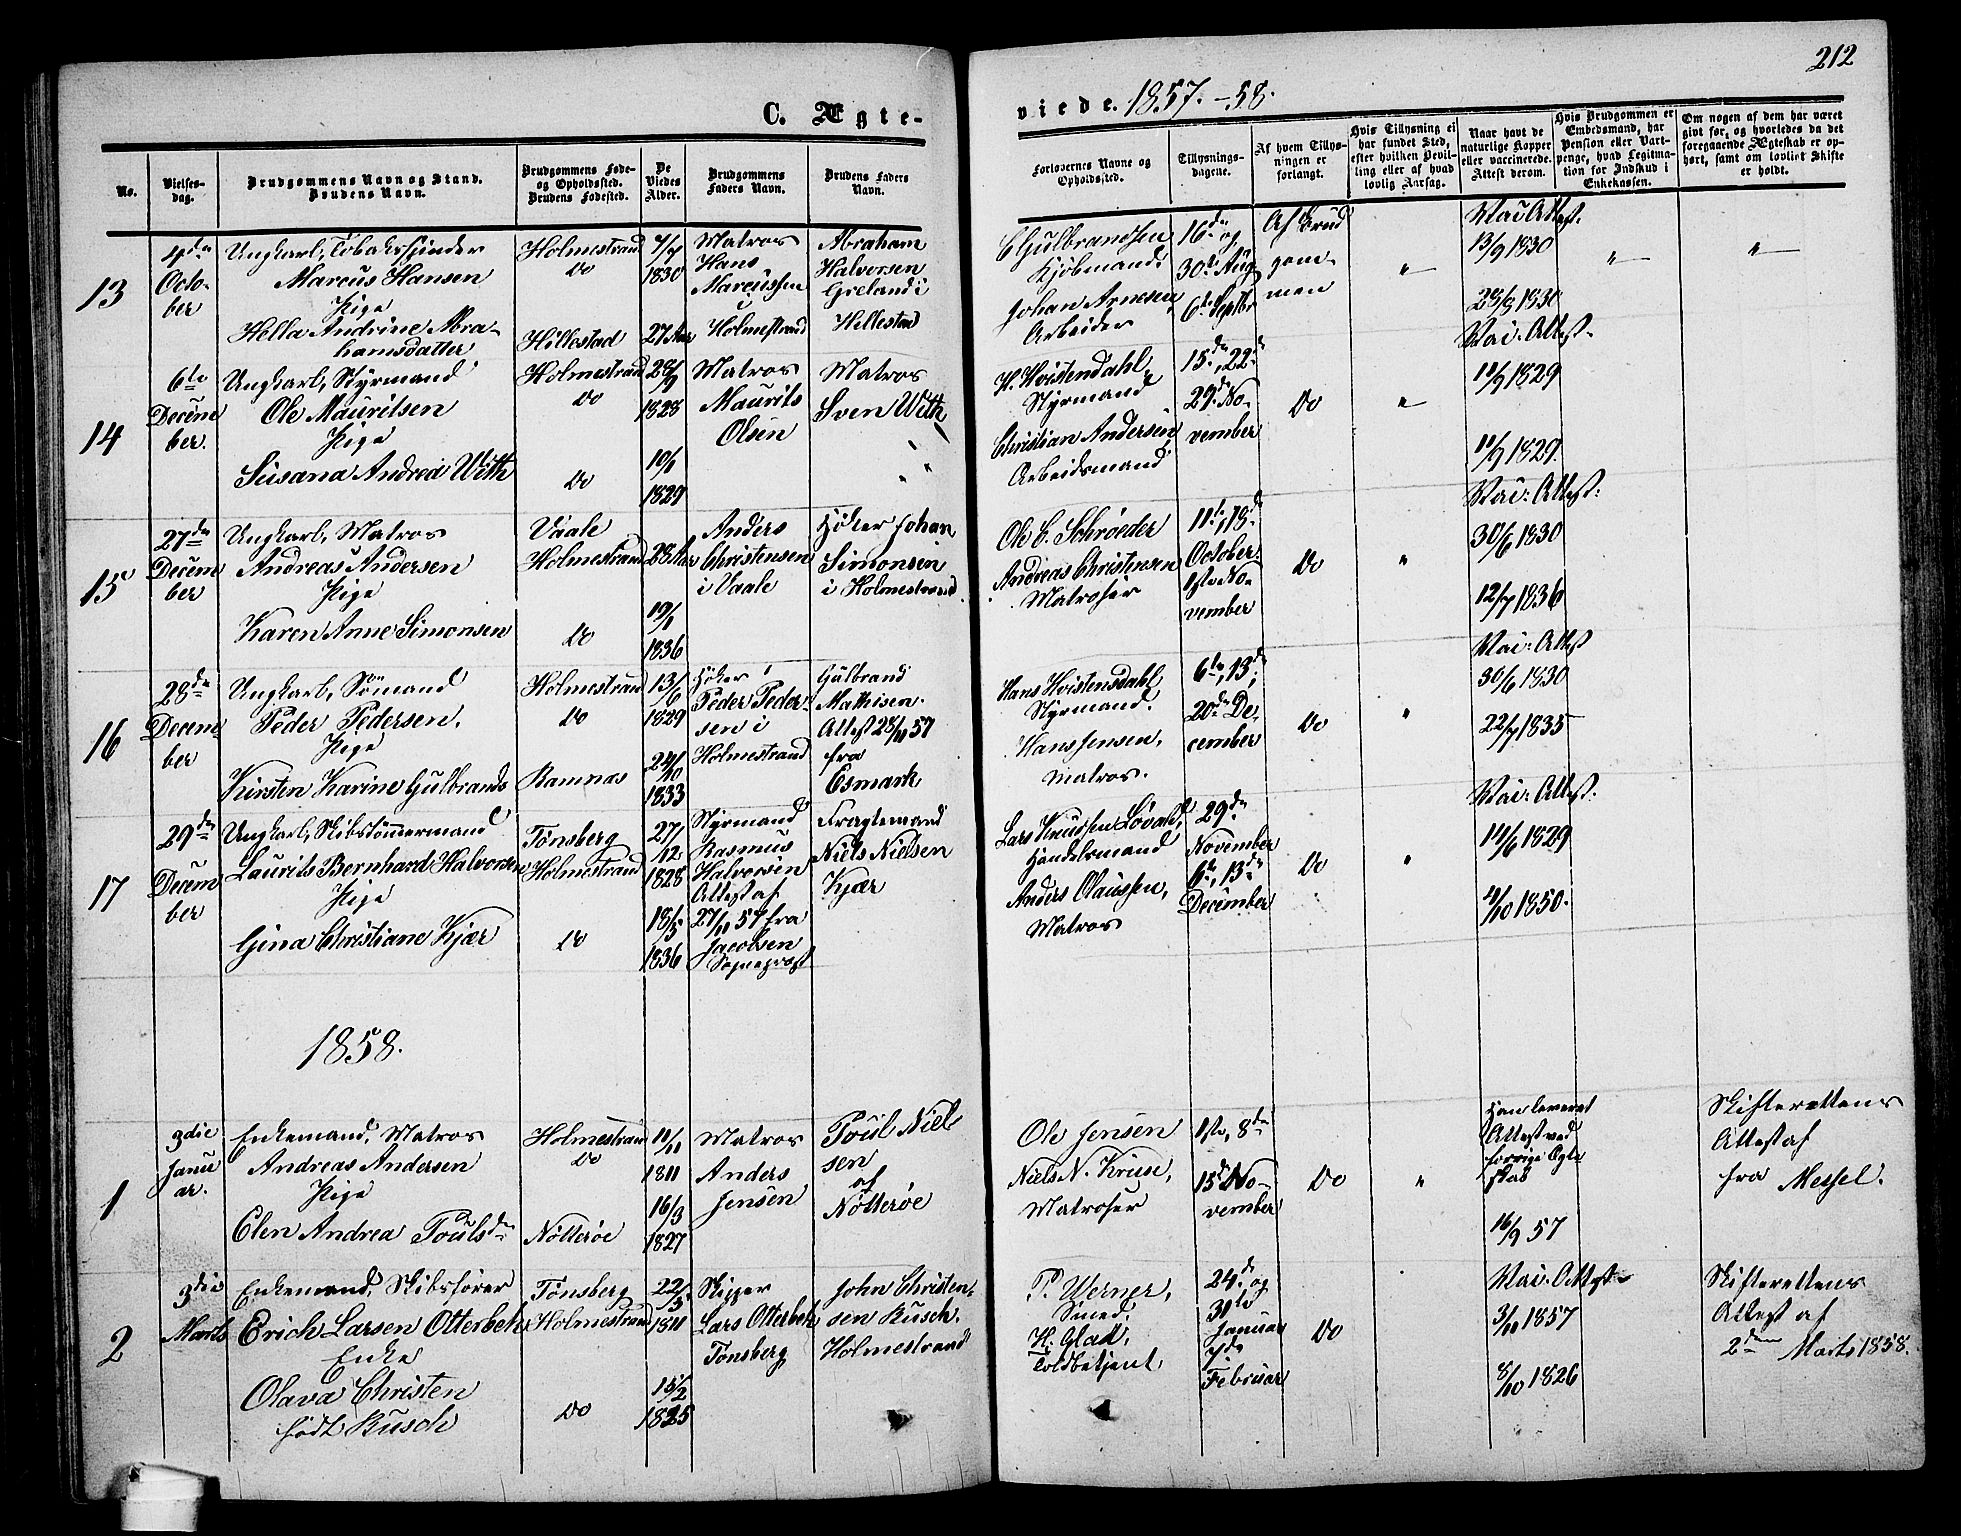 212
C. Ægte-
viede. 1857.-58.
No.
Vielses-
dag.
Brudgommens Navn og Stand.
Brudens Navn.
Brudgommens Føde-
og Opholdssted.
Brudens Fødested.
De
Viedes
Alder.
Brudgommens
Faders Navn.
Brudens Faders
Navn.
Forlovernes Navne og
Opholdssted.
Tillysnings-
dagene.
Af hvem Tillys-
ningen er
forlangt.
Hvis Tillysning ei
har fundet Sted,
efter hvilken Bevil-
ling eller af hvad
lovlig Aarsag.
Naar havt de
naturlige Kopper
eller vaccinerede.
Attest derom.
Hvis Brudgommen er
Embedsmand, har
Pension eller Vart-
penge, hvad Legitma-
tion for Indskud i
Enkekassen.
Om nogen af dem har været
givt før, og hvorledes da det
foregaaende Ægteskab er op-
hørt, samt om lovligt Skifte
er holdt.
13
4de
Octo-
ber
Ungkarl, Tobaksspinder
Marcus Hansen
Pige
Hella Andrine Abra-
hamsdatter
Holmestrand
Do
Hillestad
7/7
1830
27 Aar
Matros
Hans
Marcussen
i
Holmestrand
Abraham
Halvorsen
Greland i
Hillestad
C Gulbrandsen
Kjöbmand
Johan Arnesen,
Arbeider
16de og
30te Aug
6te Septbr
Af Brud
gom-
men
"
Vac: Attest.
13/9 1830
28/9 1830
"
"
14
6te
Decem
ber.
Ungkarl, Styrmand
Ole Mauritsen
Pige
Susana Andrea With
Holmestrand
Do
Do
28/9
1828
10/1
1829
Matros
Maurits
Olsen
Matros
Sven With
H. Hvistendahl,
Styrmand
Christian Andersen
Arbeidsmand
15de, 22de
29de No-
vember
Do
"
Vac: Attest.
11/9 1829
11/9 1829.
15
27de
Decem
ber
Ungkarl, Matros
Andreas Andersen
Pige
Karen Anne Simonsen
Vaale
Holmestrand
Do
28 Aar
19/1
1836
Anders
Christensen
i Vaale
Höker Johan
Simonsen
i Holmestrand.
Ole C. Schrøeder
Andreas Christensen
Matroser
11te, 18de
October
1ste No-
vember
Do
"
Vac: Attest:
30/6 1830
12/7 1836
16
28de
Decem-
ber
Ungkarl, Sömand
Peder Pedersen.
Pige
Kirsten Karine Gulbrands
Holmestrand
Do
Ramnæs
13/6
1829
24/10
1833
Höker
Peder Peder-
sen i
Holmestrand
Gulbrand
Mathisen.
Attest 28/11 57
fra
Esmark
Hans Hvistensdahl
Styrmand.
Hans Jensen,
Matros.
6te, 13de
20de De-
cember
Do
"
Vac: Attest
30/6 1830
22/7 1835
17
29de
Decem
ber
Ungkarl, Skibstömmermand
Laurits Bernhard Halvorsen
Pige
Gina Christiane Kjær
Tønsberg
Holmestrand
Do
27/12
1828
18/5
1836
Styrmand
Rasmus
Halvorsen
Attest af
27/11 57 fra
Jacobsen
Sognepræst
Fragtemand
Niels Nielsen
Kjær
Lars Knudsen Løvald,
Handelsmand
Anders Olaussen,
Matros
29de
November
6te, 13de
December
Do
"
Vac: Attest.
14/6 1829
4/10 1850.
1858.
1
3die
Janu
ar.
Enkemand, Matros
Andreas Andersen
Pige
Elen Andrea Poulsdr
Holmestrand
Do
Nötterøe
11/11
1811
16/3
1827
Matros
Anders
Jensen
Poul Niel
sen
af
Nötterøe
Ole Jensen
Niels N. Kruse,
Matroser
1ste, 8de
15de No-
vember
Do
"
Han leveret
Attest ved
forrige Ægte
skab
16/9 57
Skifterettens
Attest af
fra Messel.
2
3die
Marts
Enkemand, Skibsfører
Erich Larsen Otterbek
Enke
Olava Christen
født Busch
Tønsberg
Holmestrand
Do
22/5
1811
15/2
1825
Skipper
Lars Otterbek
Tønsberg
John Christen-
sen Busch.
Holmestrand
P. Werner,
Smed.
H. Glad,
Toldbetjent
24de og
31te
Januar
7de
Februar
Do
Vac: Attest
3/10 1857
8/10 1826
Skifterettens
Attest af
2den Marts 1858.